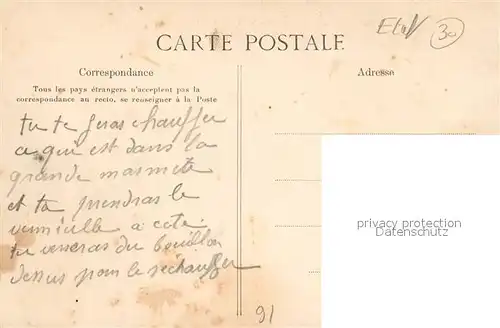 CARTE POSTALE
EtoV
30
Correspondance
Adresse
Tous les pays étrangers n'acceptent pas la
correspondance au recto, se renseigner à la Poste
tu te feras chauffer
ce qui est dans la
grande marmite
et tu prendras le
vermicelle a coté.
tu verseras du bouillon
dessus pour le réchauffer
91
privacy protection
Datenschutz